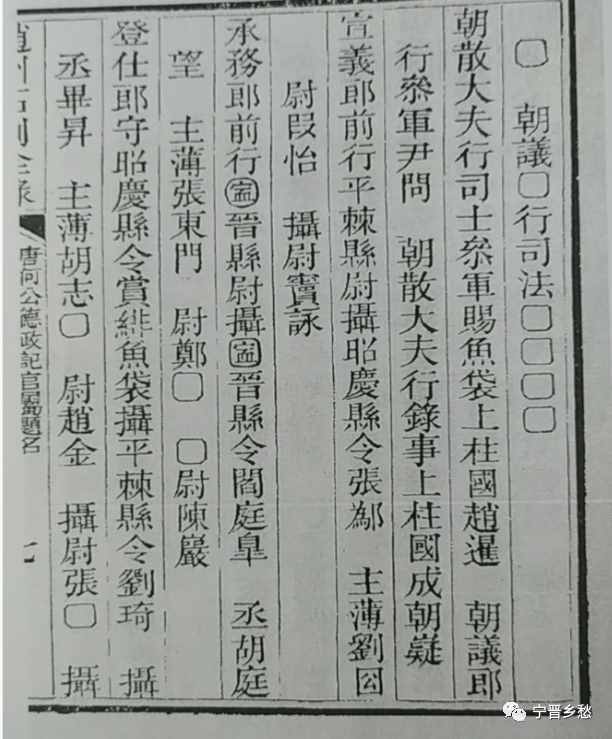 □ 朝議□行司法□□□□
朝散大夫行司士叅軍賜魚袋上柱國趙暹 朝議郎
行叅軍尹問 朝散大夫行錄事上柱國成朝嶷
宣義郎前行平棘縣尉攝昭慶縣令張 主薄劉
尉叚怡 攝尉竇詠
承務郎前行寍晉縣尉攝寍晉縣令閻庭臯 丞胡庭
望 主薄張東門 尉鄭□ □尉陳巖
登仕郎守昭慶縣令賞緋魚袋攝平棘縣令劉琦 攝
丞畢昇 主薄胡志□ 尉趙金 攝尉張□ 攝
趙州石刻全錄 唐何公德政記官屬題名
宁晋乡愁